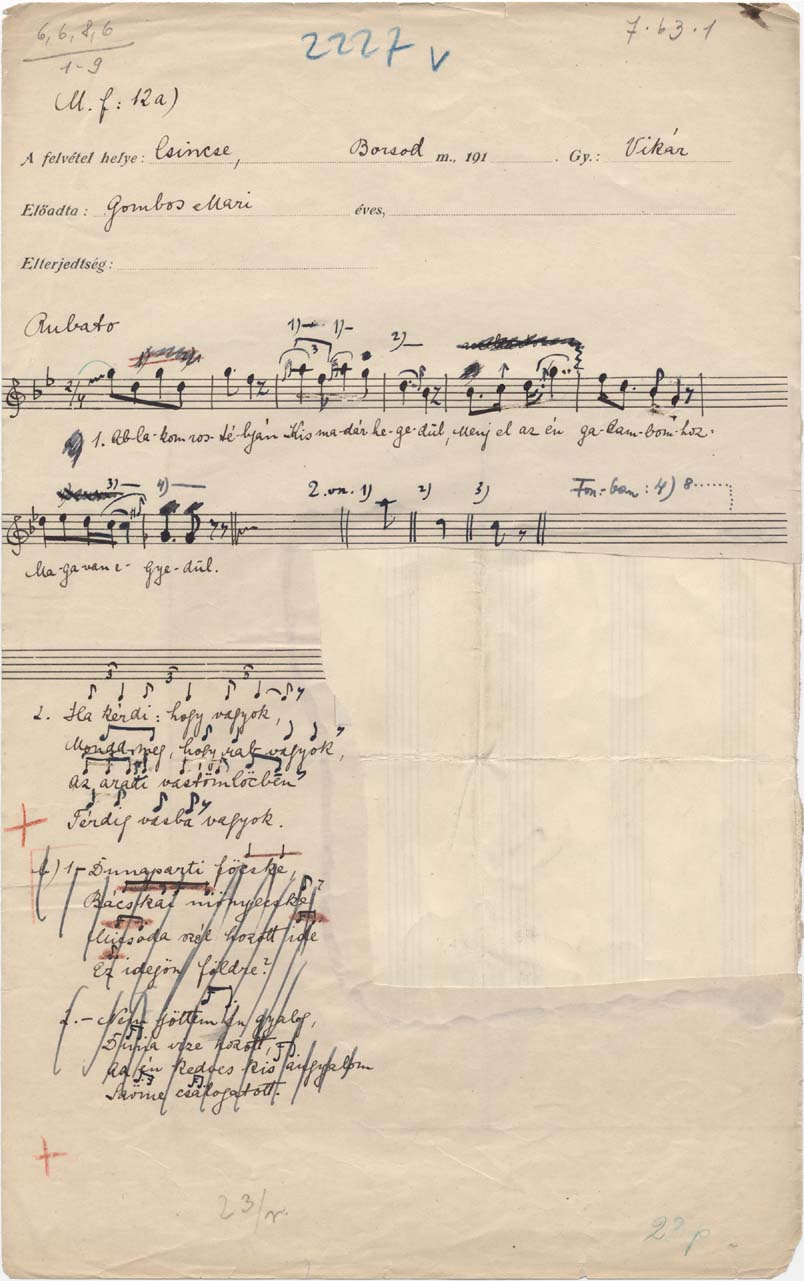 6, 6, 8, 6
1-9
2227 v
7.63.1
(M. f: 12a)
A felvétel helye: Csincse, Borsod m., 191 . Gy.: Vikár
Előadta: Gombos Mari éves,
Elterjedtség:
Rubato
1) 1) 2)
3
2/4
1. Ab-la-kom ros-té-lyán Kis ma-dár he-ge-dül, Menj el az én ga-lam-bom-hoz.
3) 4) 2. vn. 1) 2) 3) Fon.-ban: 4) 8
Ma-ga van e-gye-dül.
3 3 3
2. Ha kérdi: hogy vagyok,
Mondd meg, hogy rab vagyok,
Az aradi vastömlöcben
Térdig vasba vagyok.
1- Dunaparti föcske,
Bácskai mönyecske,
Micsoda szél hozott ide
Ez idejön földre?
2.- Nem jöttem én gyalog,
Duna vize hozott,
Az én kedves kis angyalom
csalogatott.
23/v.